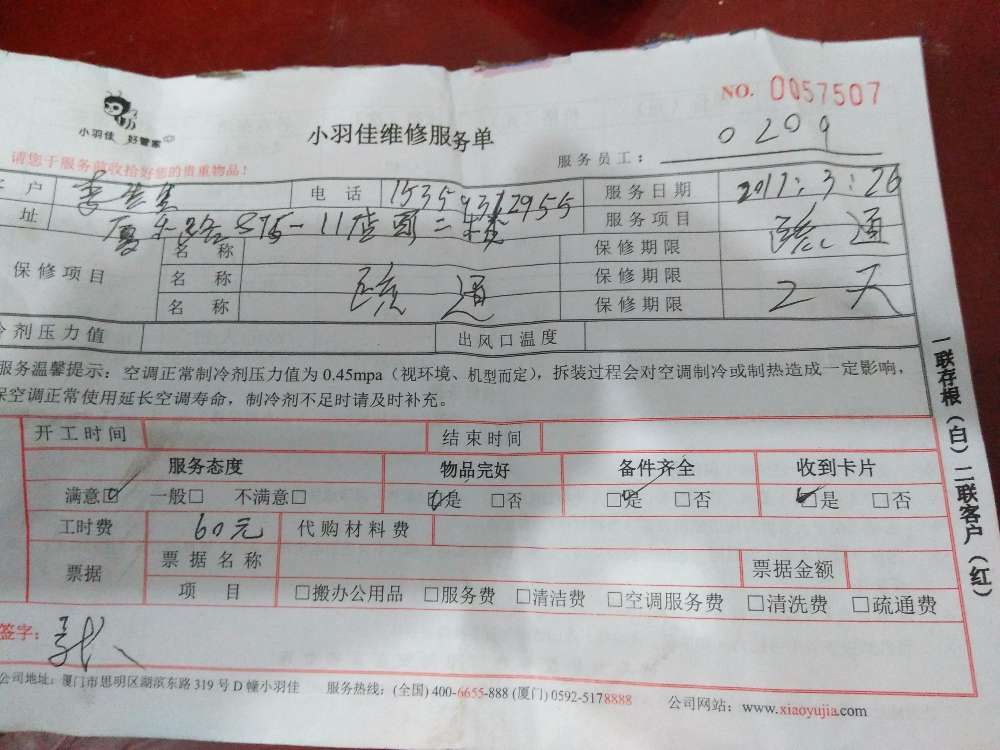 NO. 0057507
小羽佳 好管家
小羽佳维修服务单
服务员工: 0209
请您于服务前收拾好您的贵重物品!
户 电话 服务日期 2017:3:26
址 服务项目 疏通
保修项目 名称 保修期限
名称 疏通 保修期限 2天
名称 保修期限
剂压力值 出风口温度
服务温馨提示: 空调正常制冷剂压力值为 0.45mpa (视环境、机型而定), 拆装过程会对空调制冷或制热造成一定影响,
保空调正常使用延长空调寿命, 制冷剂不足时请及时补充。
开工时间 结束时间
服务态度 物品完好 备件齐全 收到卡片
满意☑ 一般□ 不满意□ ☑是 □否 ☑是 □否 ☑是 □否
工时费 60元 代购材料费
票据 票据名称 票据金额
项目 □搬办公用品 □服务费 □清洁费 □空调服务费 □清洗费 □疏通费
签字:
公司地址: 厦门市思明区湖滨东路 319 号 D 幢小羽佳 服务热线: (全国) 400-6655-888 (厦门) 0592-5178888 公司网站: www.xiaoyujia.com
一联存根(白) 二联客户(红)